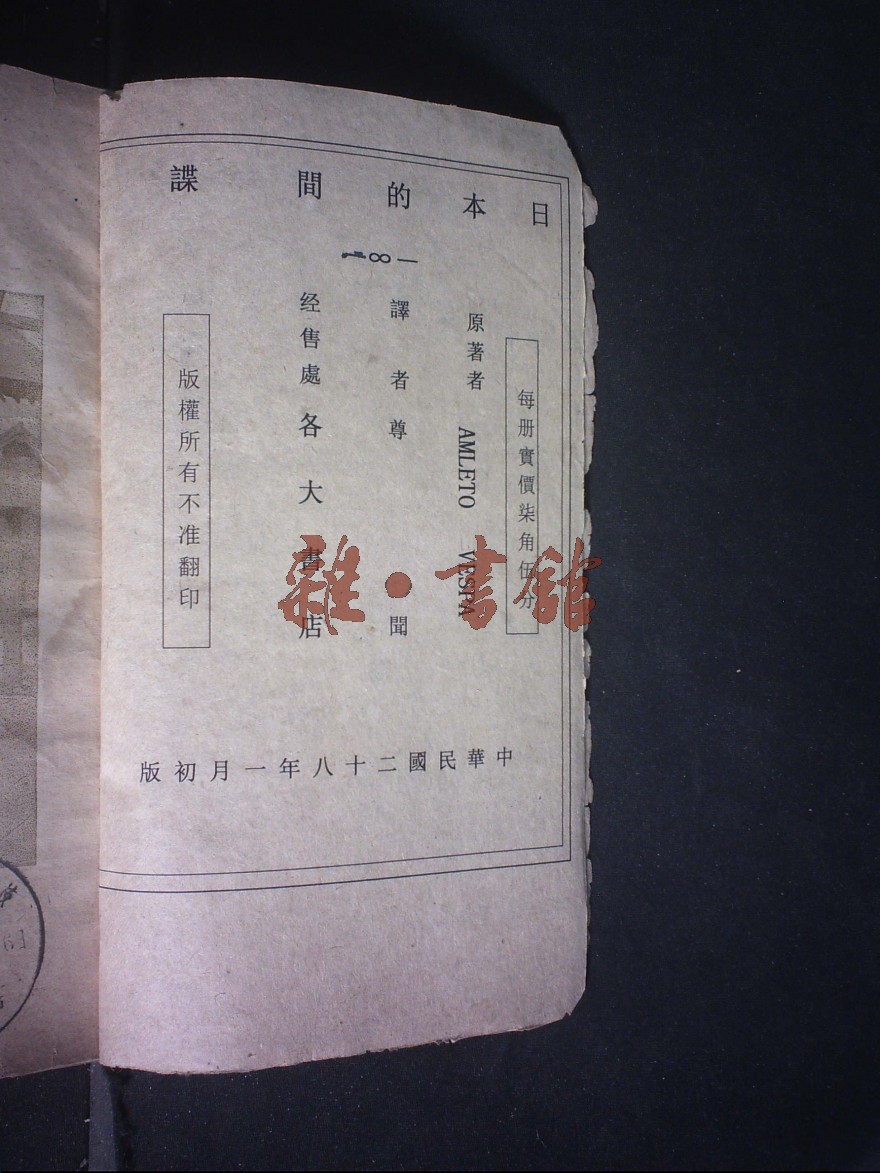 日本的間諜
每册實價柒角伍分
原著者 AMLETO VESPA
譯者尊聞
经售處各大書店
版權所有不准翻印
中華民國二十八年一月初版
雜·書館